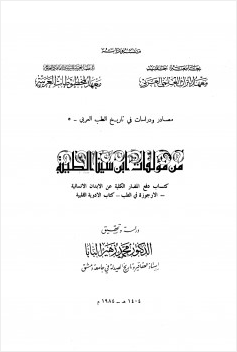 جامعة حلب
معهد التراث العلمي العربي
معهد المخطوطات العربية
مصادر ودراسات في تاريخ الطب العربي - ٥
من مؤلفات ابن سينا الطبية
كتاب دفع المضار الكلية عن الابدان الانسانية
- الارجوزة في الطب - كتاب الادوية القلبية
دراسة وتحقيق
الدكتور محمد زهير البابا
استاذ العقاقير وتاريخ الصيدلة في جامعة دمشق
١٤٠٤ هـ - ١٩٨٤ م